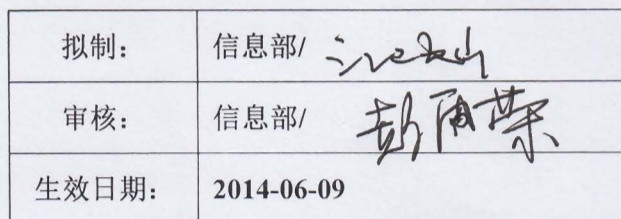 拟制： 信息部/
审核： 信息部/
生效日期： 2014-06-09